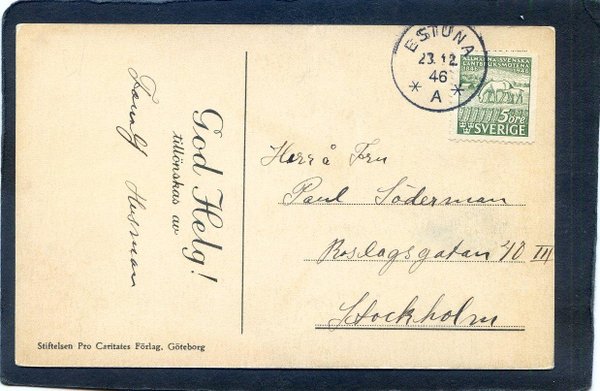 God Helg!
tillönskas av
Familj Husman
Stiftelsen Pro Caritates Förlag, Göteborg
ESTUNA
23.12
46
* A *
ALLMÄNNA SVENSKA
LANTBRUKSMÖTENA
1846 1946
5 öre
SVERIGE
Herr å Fru
Paul Söderman
Roslagsgatan 40 III
Stockholm